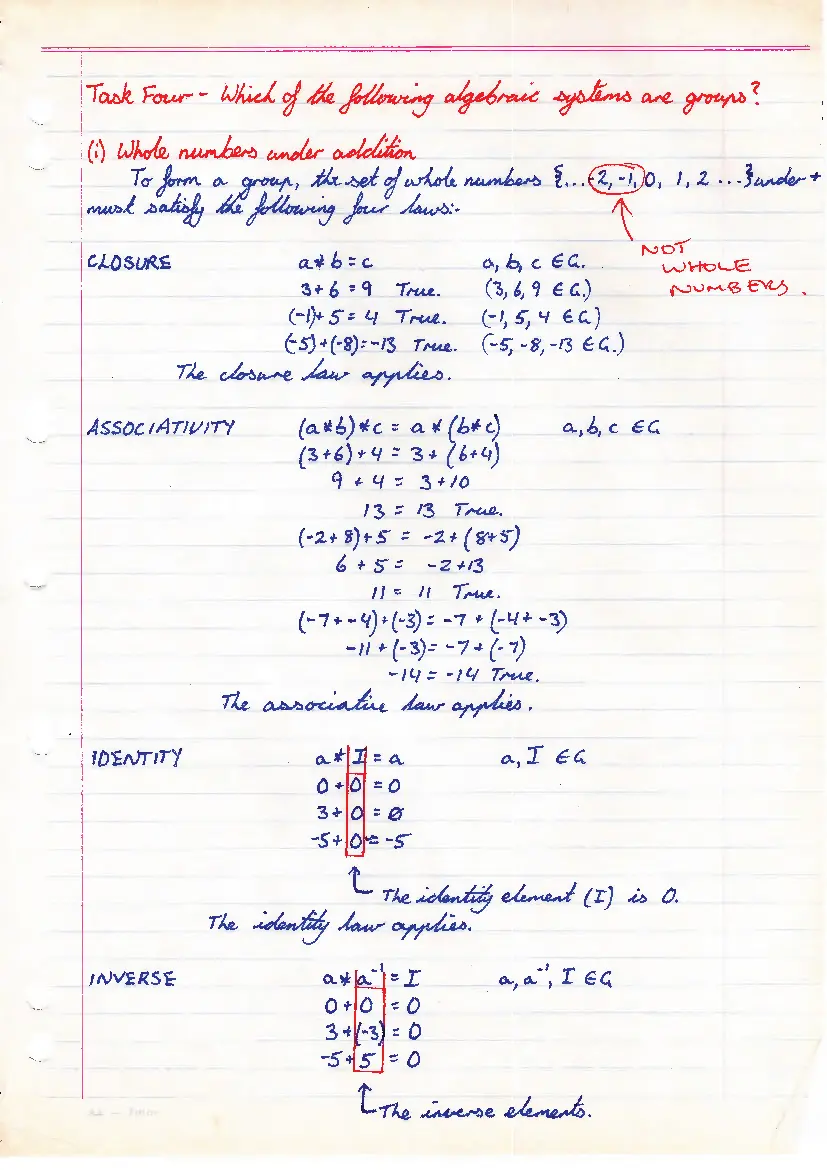 Task Four - Which of the following algebraic systems are groups?
(i) Whole numbers under addition
To form a group, the set of whole numbers {...-2, -1, 0, 1, 2 ...} under +
must satisfy the following four laws:-
NOT
WHOLE
NUMBERS.
CLOSURE a * b = c a, b, c ∈ G.
3 + 6 = 9 True. (3, 6, 9 ∈ G.)
(-1)+ 5 = 4 True. (-1, 5, 4 ∈ G)
(-5)+(-8)=-13 True. (-5, -8, -13 ∈ G.)
The closure law applies.
ASSOCIATIVITY (a*b)*c = a*(b*c) a, b, c ∈ G
(3+6)+4 = 3+(6+4)
9 + 4 = 3+10
13 = 13 True.
(-2+8)+5 = -2+(8+5)
6 + 5 = -2+13
11 = 11 True.
(-7+-4)+(-3) = -7 + (-4+-3)
-11 + (-3) = -7 + (-7)
-14 = -14 True.
The associative law applies.
IDENTITY a * I = a a, I ∈ G
0 + 0 = 0
3 + 0 = 0
-5 + 0 = -5
The identity element (I) is 0.
The identity law applies.
INVERSE a * a⁻¹ = I a, a⁻¹, I ∈ G
0 + 0 = 0
3 + (-3) = 0
-5 + 5 = 0
The inverse elements.